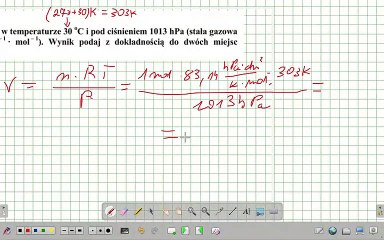 (273+30)K = 303K
w temperaturze 30 °C i pod ciśnieniem 1013 hPa (stała gazowa
⁻¹ · mol⁻¹). Wynik podaj z dokładnością do dwóch miejsc
V = n · R T / P = 1 mol · 83,14 hPa·dm³ / K·mol · 303K / 1013 hPa =
=